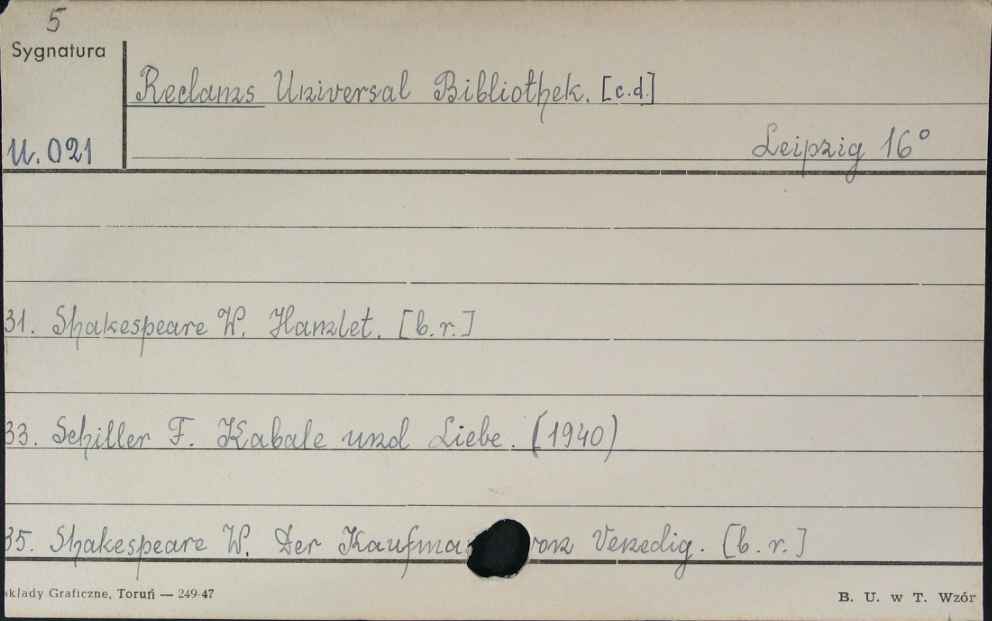 5
Sygnatura
Reclams Universal Bibliothek. [c.d.]
U. 021
Leipzig 16°
31. Shakespeare W. Hamlet. [b.r.]
33. Schiller F. Kabale und Liebe. (1940)
35. Shakespeare W. Der Kaufma von Venedig. [b.r.]
kłady Graficzne, Toruń — 249-47
B. U. w T. Wzór